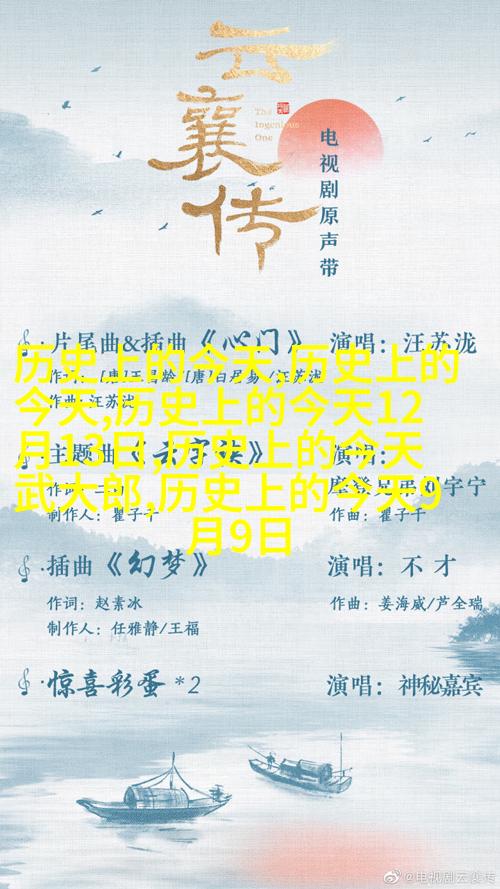 云襄传
The
Ingenious
One
电视剧原声带
片尾曲&插曲《心门》 演唱：汪苏泷
历史上的今天,历史上的
今天,历史上的今天12
月13日,历史上的今天
武大郎,历史上的今天9
月9日
作曲：汪苏泷
主题曲
演唱：
制作人：瞿子千 作曲：瞿子千
插曲《幻梦》 演唱：不才
作词：赵素冰 作曲：姜海威/芦全瑞
制作人：任雅静/王福
惊喜彩蛋*2 演唱：神秘嘉宾
@电视剧云襄传